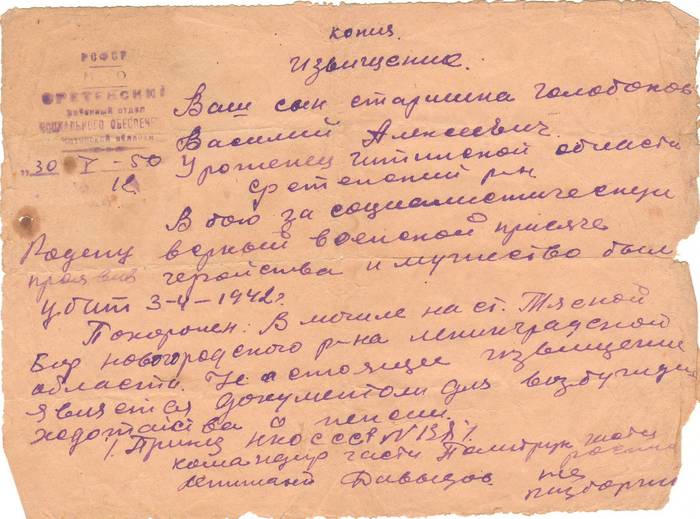 копия.
Извищение.
РСФСР
СРЕТЕНСКИЙ
Районный отдел
СОЦИАЛЬНОГО ОБЕСПЕЧЕ
Читинской области
„30 V - 50
12
Ваш сын старшина голобоков
Василий Алексиевич.
Уроженец читинской области
сретенский р-н
В бою за социалистическую
Родену верный военской присяге
проявив геройства и мужество был
убит 3-4-1942г
Похоронен: В могиле на ст. Тясной
Бор новогородского р-на ленинградской
области. Настоящие извищении
является документом для возбужди
ходотайства о пенсии.
Приказ НКОСССР N 138
командир части Политрук части
лейтинант Давыдов не